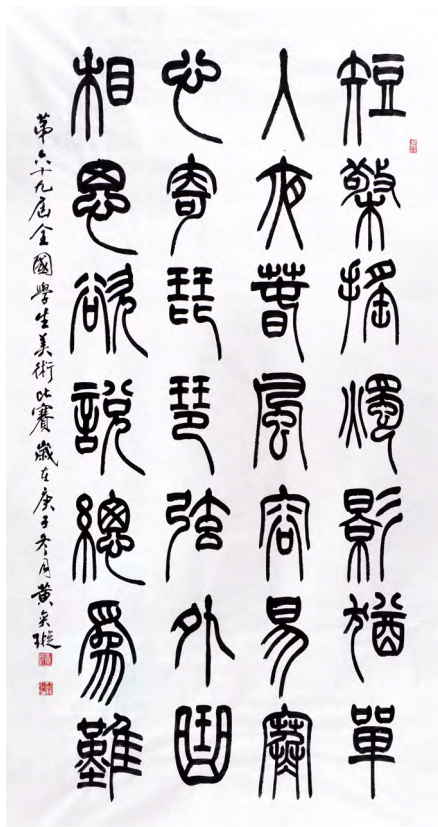 短檠搖燭影猶單
入夜春風容易寒
心寄琵琶弦外曲
相思欲說總為難
第六十九屆全國學生美術比賽 歲在庚子冬月 黃奕璇